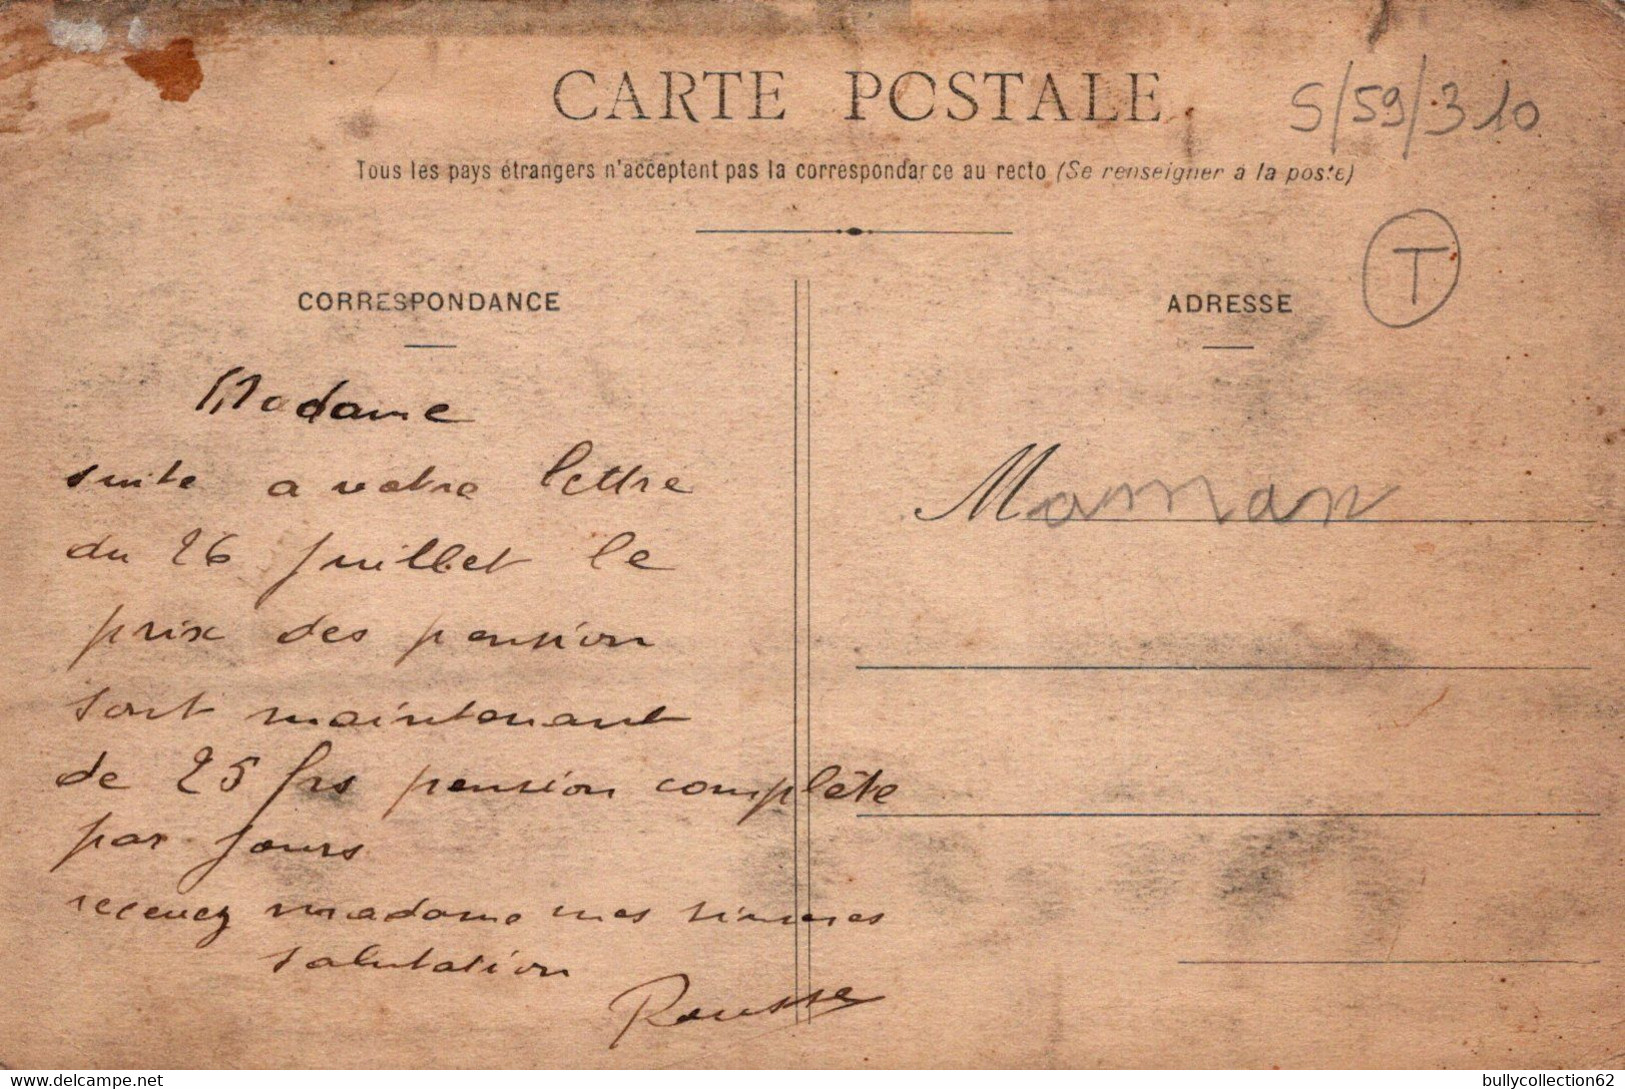 CARTE POSTALE
S/59/310
Tous les pays étrangers n'acceptent pas la correspondance au recto (Se renseigner à la poste)
T
CORRESPONDANCE
Madame
suite a votre lettre
du 26 Juillet le
prix des pension
sont maintenant
de 25 frs pension complète
par jours
recevez madame mes sinceres
salutation
Rousse
ADRESSE
Maman
bullycollection62